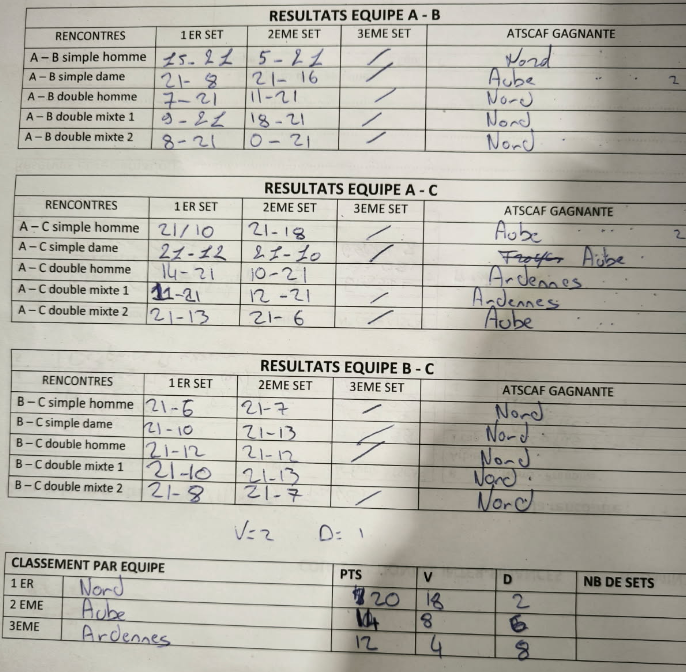 RESULTATS EQUIPE A - B
RENCONTRES 1 ER SET 2EME SET 3EME SET ATSCAF GAGNANTE
A – B simple homme 15-21 5-21 / Nord
A – B simple dame 21-8 21-16 / Aube 2
A – B double homme 7-21 11-21 / Nord
A – B double mixte 1 9-21 18-21 / Nord
A – B double mixte 2 8-21 0-21 / Nord
RESULTATS EQUIPE A - C
RENCONTRES 1 ER SET 2EME SET 3EME SET ATSCAF GAGNANTE
A – C simple homme 21/10 21-18 / Aube 2
A – C simple dame 21-12 21-10 / Aube
A – C double homme 14-21 10-21 Ardennes
A – C double mixte 1 11-21 12-21 / Ardennes
A – C double mixte 2 21-13 21-6 / Aube
RESULTATS EQUIPE B - C
RENCONTRES 1 ER SET 2EME SET 3EME SET ATSCAF GAGNANTE
B – C simple homme 21-6 21-7 / Nord
B – C simple dame 21-10 21-13 / Nord
B – C double homme 21-12 21-12 / Nord
B – C double mixte 1 21-10 21-13 Nord
B – C double mixte 2 21-8 21-7 / Nord
V=2 D=1
CLASSEMENT PAR EQUIPE PTS V D NB DE SETS
1 ER Nord 20 18 2
2 EME Aube 14 8 6
3EME Ardennes 12 4 8